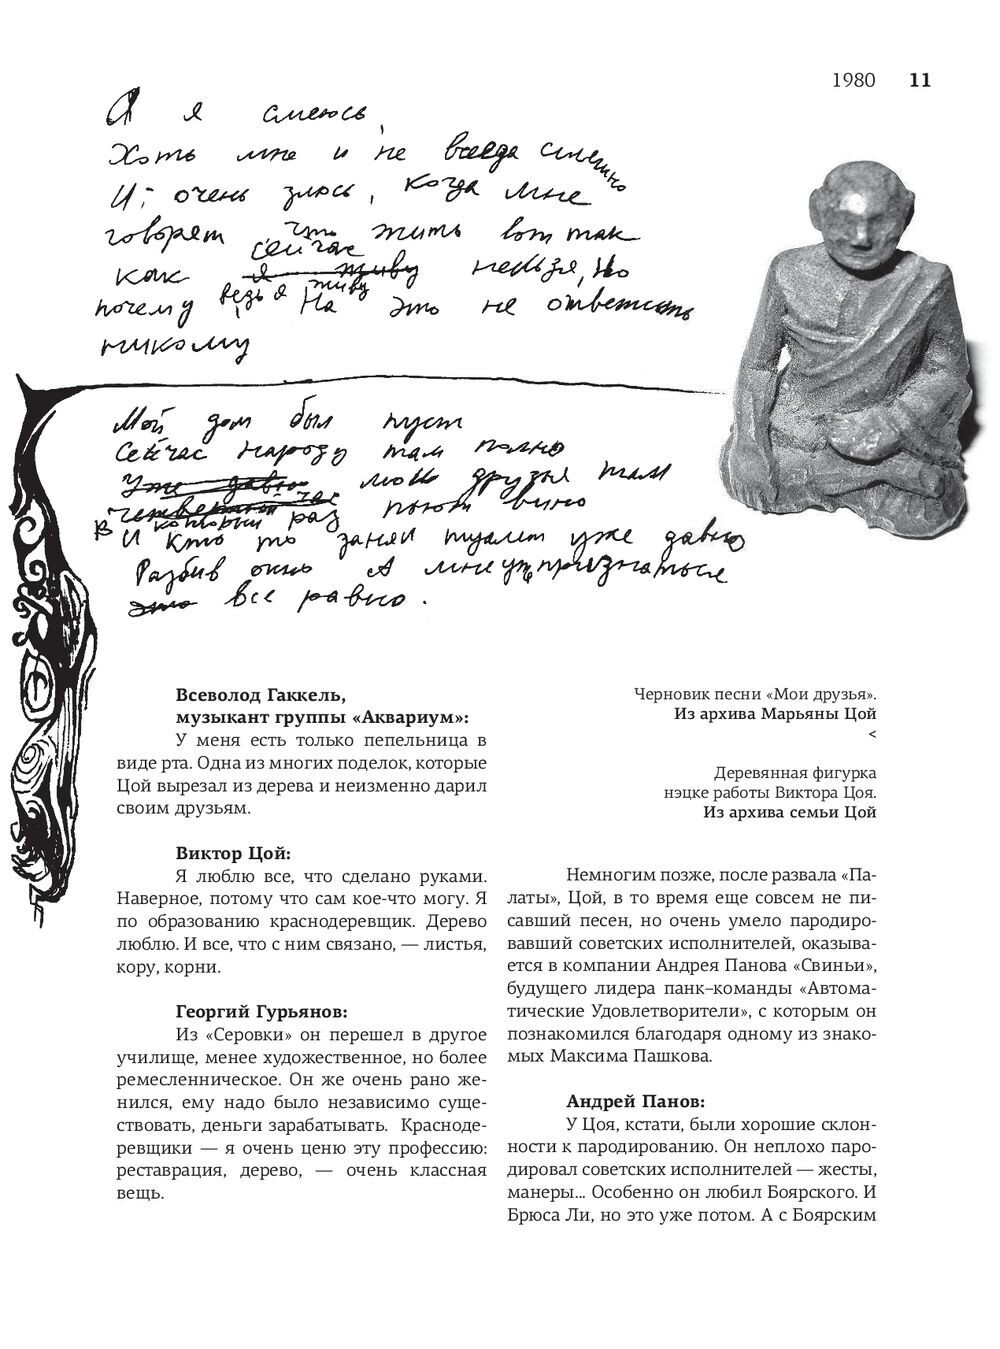 1980 11
А я смеюсь,
Хоть мне и не всегда смешно
И очень злюсь, когда мне
говорят, что жить вот так
сейчас
как я живу нельзя, но
почему ведь я живу На это не ответить
никому
Мой дом был пуст
Сейчас народу там полно
Уже давно мои друзья там
четвертый час
В который раз пьют вино
И кто то занял туалет уже давно
Разбив окно А мне признаться
это все равно.
Всеволод Гаккель,
музыкант группы «Аквариум»:
У меня есть только пепельница в
виде рта. Одна из многих поделок, которые
Цой вырезал из дерева и неизменно дарил
своим друзьям.
Виктор Цой:
Я люблю все, что сделано руками.
Наверное, потому что сам кое-что могу. Я
по образованию краснодеревщик. Дерево
люблю. И все, что с ним связано, — листья,
кору, корни.
Георгий Гурьянов:
Из «Серовки» он перешел в другое
училище, менее художественное, но более
ремесленническое. Он же очень рано же-
нился, ему надо было независимо суще-
ствовать, деньги зарабатывать. Красноде-
ревщики — я очень ценю эту профессию:
реставрация, дерево, — очень классная
вещь.
Черновик песни «Мои друзья».
Из архива Марьяны Цой
<
Деревянная фигурка
нэцке работы Виктора Цоя.
Из архива семьи Цой
Немногим позже, после развала «Па-
латы», Цой, в то время еще совсем не пи-
савший песен, но очень умело пародиро-
вавший советских исполнителей, оказыва-
ется в компании Андрея Панова «Свиньи»,
будущего лидера панк–команды «Автома-
тические Удовлетворители», с которым он
познакомился благодаря одному из знако-
мых Максима Пашкова.
Андрей Панов:
У Цоя, кстати, были хорошие склон-
ности к пародированию. Он неплохо паро-
дировал советских исполнителей — жесты,
манеры... Особенно он любил Боярского. И
Брюса Ли, но это уже потом. А с Боярским